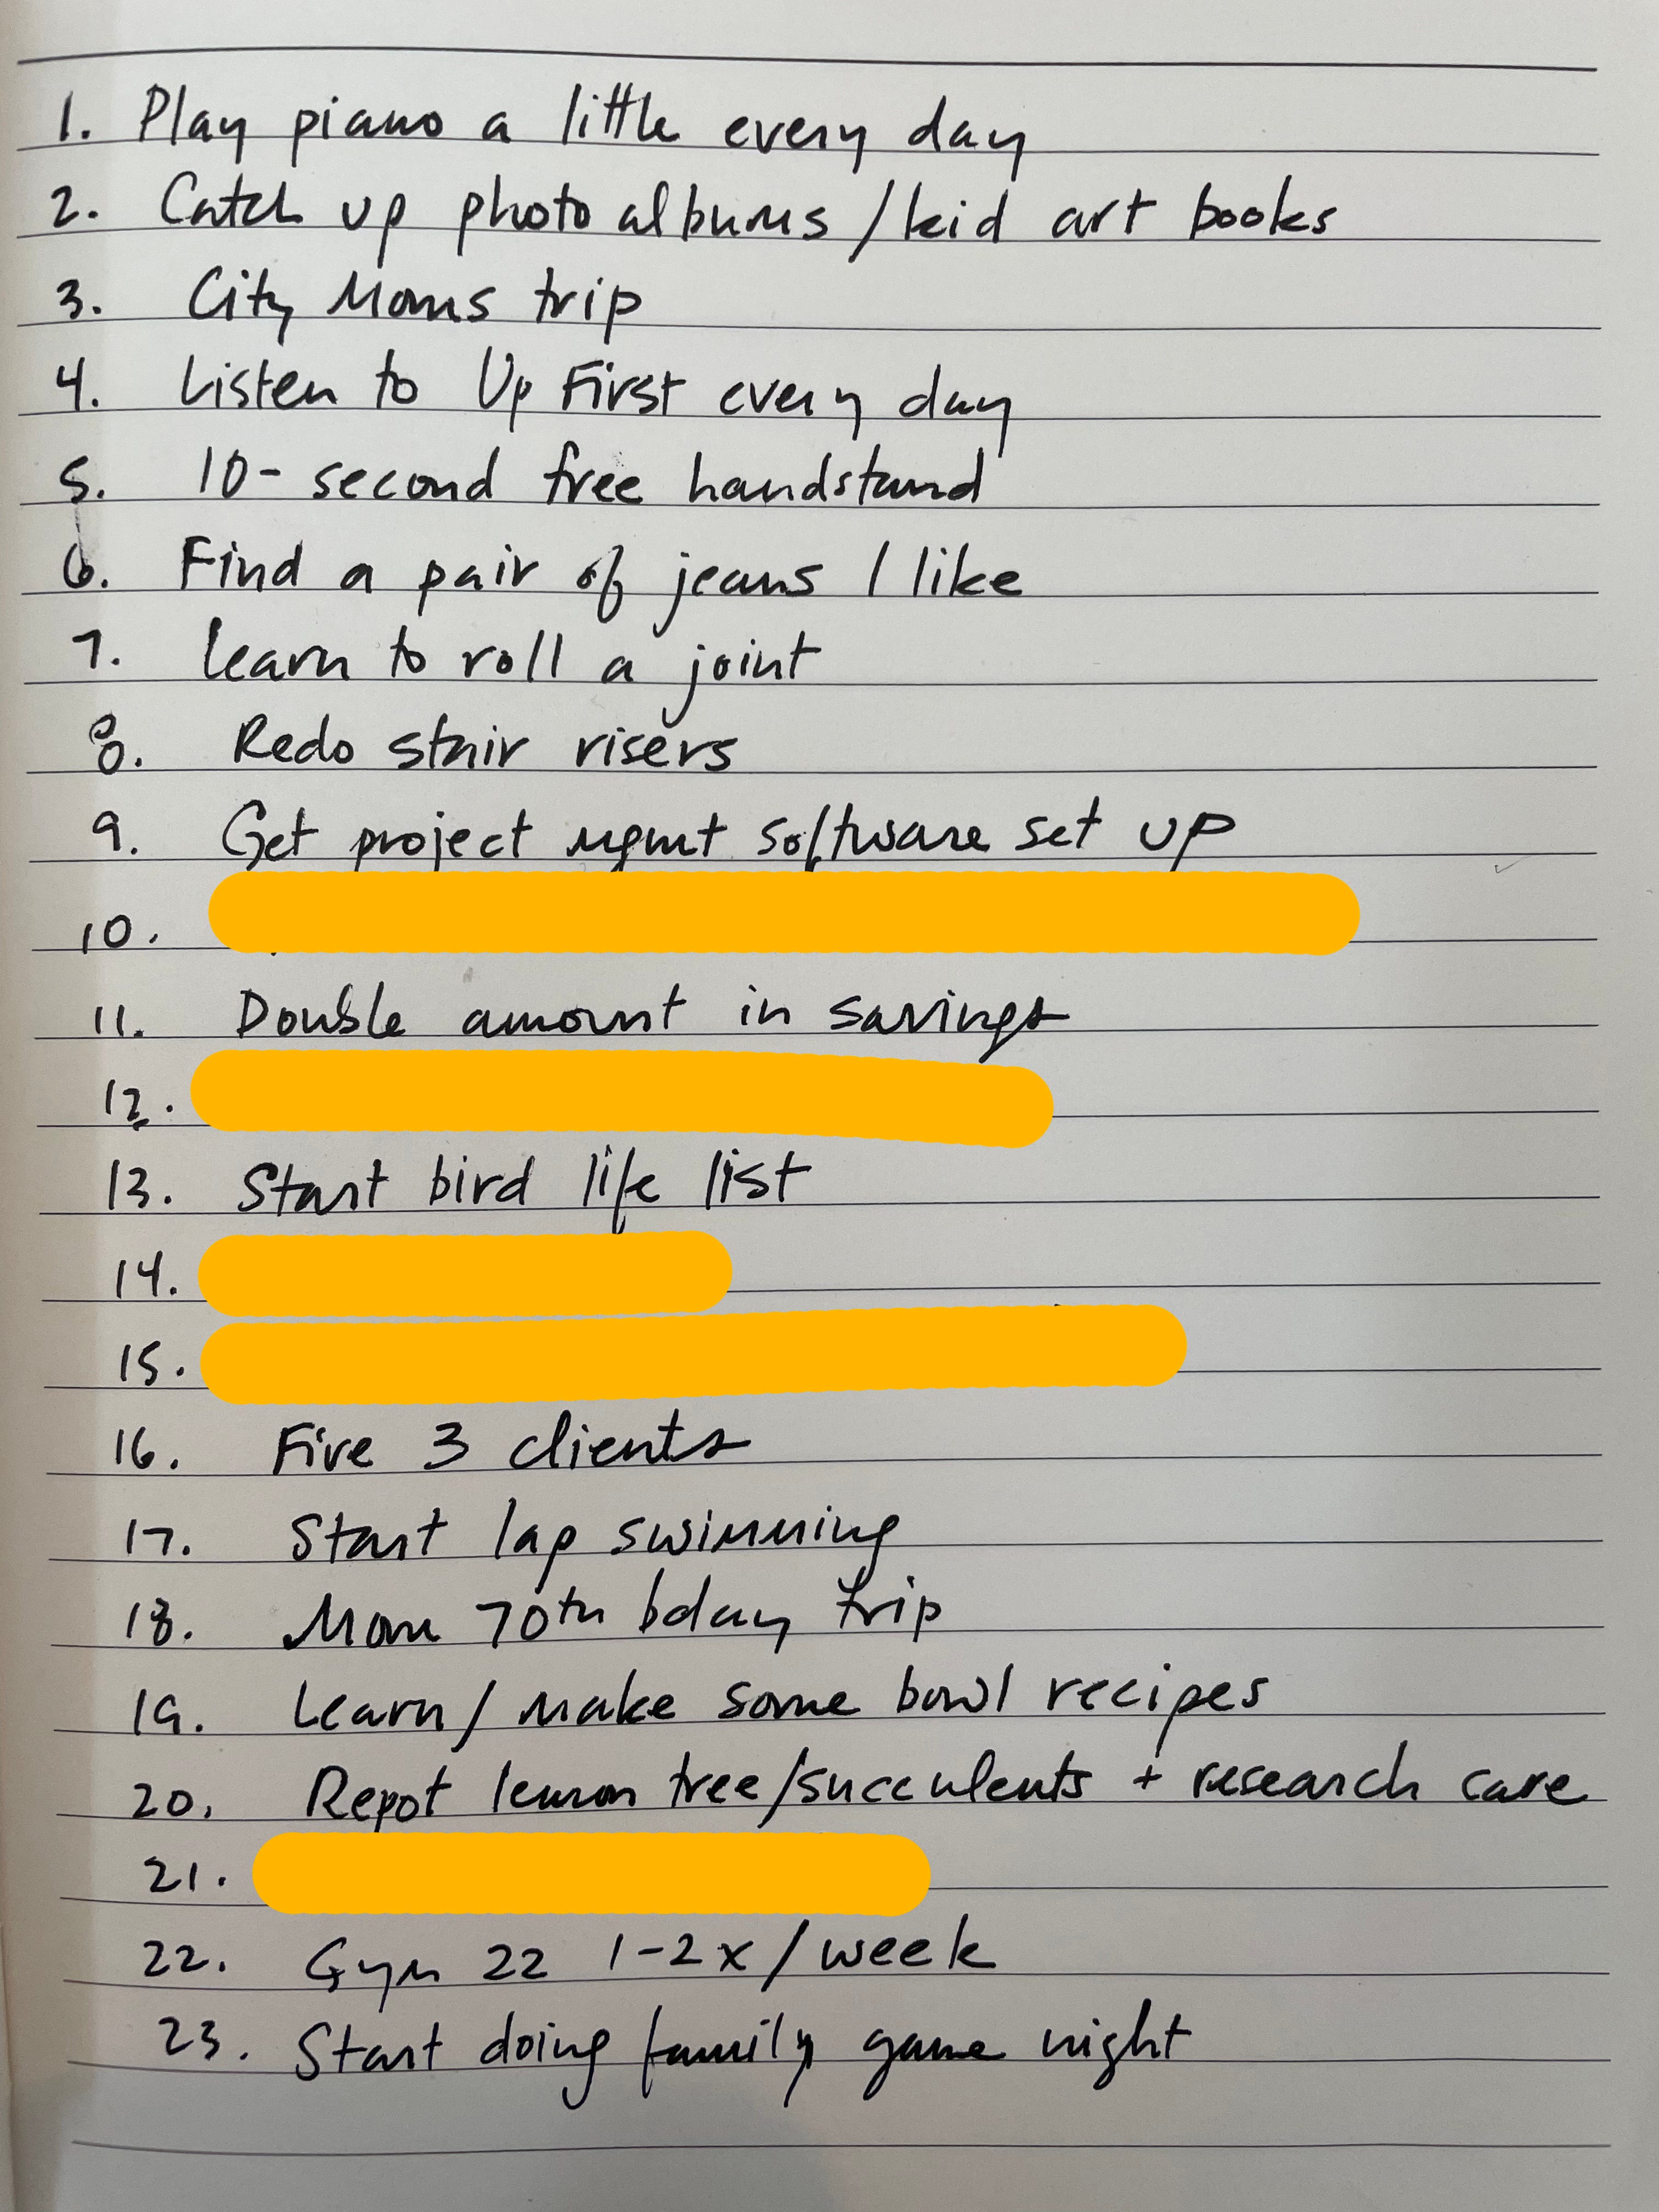 1. Play piano a little every day
2. Catch up photo albums/kid art books
3. City Moms trip
4. Listen to Up First every day
5. 10-second free handstand
6. Find a pair of jeans I like
7. Learn to roll a joint
8. Redo stair risers
9. Get project mgmt software set up
10.
11. Double amount in savings
12.
13. Start bird life list
14.
15.
16. Fire 3 clients
17. Start lap swimming
18. Mom 70th bday trip
19. Learn/make some bowl recipes
20. Repot lemon tree/succulents + research care
21.
22. Gym 22 1-2x/week
23. Start doing family game night